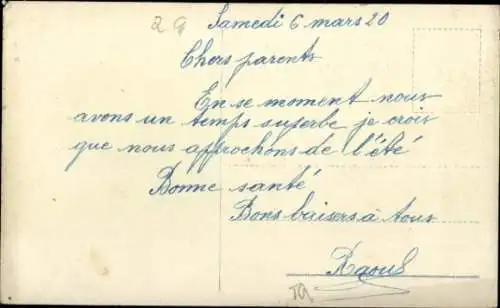 Samedi 6 mars 20
Chers parents
En se moment nous
avons un temps superbe je crois
que nous approchons de l'été
Bonne santé
Bons baisers à tous
Raoul